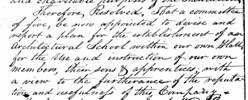 Therefore, Resolved, That a committee
of five, be now appointed to devise and
report a plan for the establishment of an
Architectural School within our own Halls,
for the use and instruction of our own
members, their sons & apprentices, with
a view to the furtherance of the reputa-
tion and usefulness of this Company.